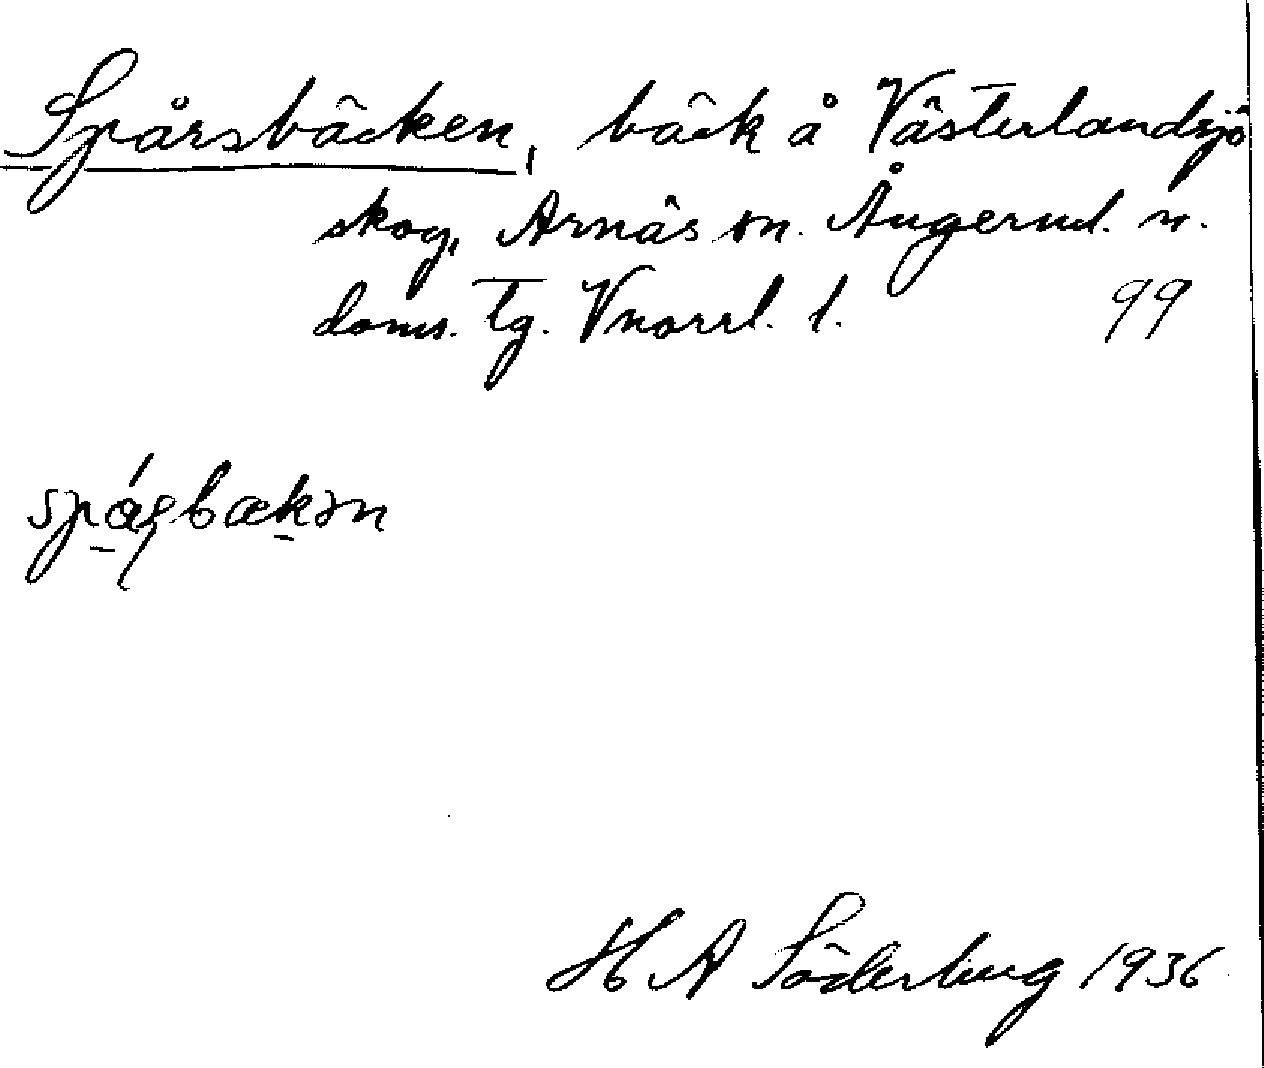 Spårsbäcken, bäck å Västerlandsjö
skog, Arnäs sn. Ångerml. n.
doms. tg. Vnorrl. l. 99
H A Söderberg 1936